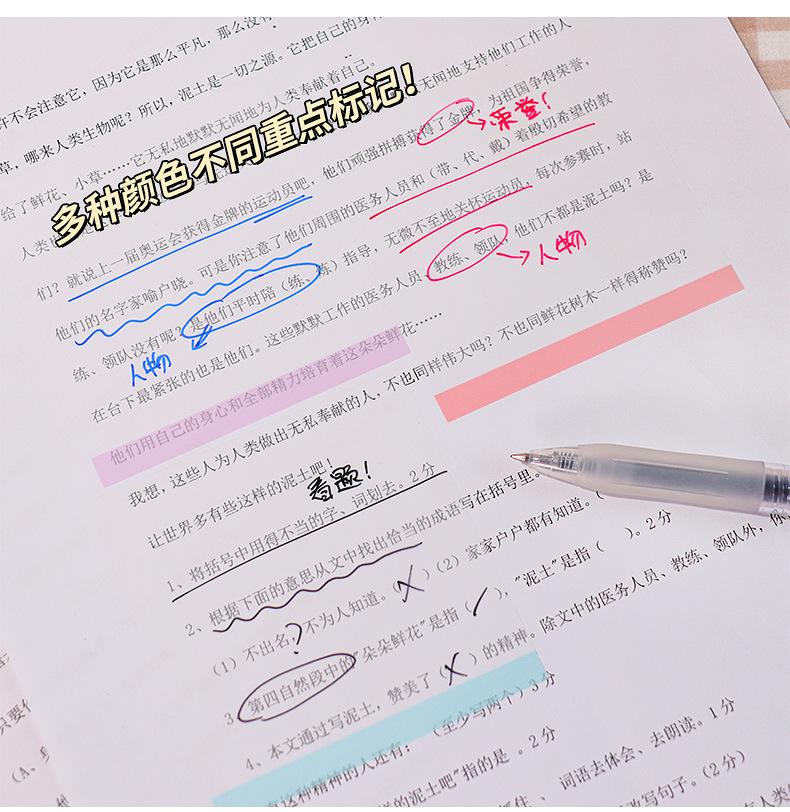 许不会注意它，因为它是那么平凡，那么没有
草，哪来人类生物呢？所以，泥土是一切之源。它把自己的身
给了鲜花、小草……它无私地默默无闻地为人类奉献着自己。
多种颜色不同重点标记！
无闻地支持他们工作的人
们？就说上一届奥运会获得金牌的运动员吧，他们顽强拼搏获得了金牌，为祖国争得荣誉，
荣誉！
他们的名字家喻户晓。可是你注意了他们周围的医务人员和（带、代、戴）着殷切希望的教
练、领队没有呢？是他们平时陪（练、炼）指导，无微不至地关怀运动员，每次参赛时，站
人物
在台下最紧张的也是他们。这些默默工作的医务人员、教练、领队，他们不都是泥土吗？是
人物
他们用自己的身心和全部精力培育着这朵朵鲜花……
我想，这些人为人类做出无私奉献的人，不也同样伟大吗？不也同鲜花树木一样得称赞吗？
让世界多有些这样的泥土吧！
看题！
1、将括号中用得不当的字、词划去。2分
2、根据下面的意思从文中找出恰当的成语写在括号里。
（1）不出名，不为人知道。（×）（2）家家户户都有知道。（
?
3、第四自然段中的“朵朵鲜花”是指（✓），“泥土”是指（ ）。2分
4、本文通过写泥土，赞美了（×）的精神。除文中的医务人员、教练、领队外，你
有这种精神的人还有： （至少写两个）3分
样的泥土吧"指的是 。2分
词语去体会、去朗读。1分
改写句子。（2分）
只要
（A、